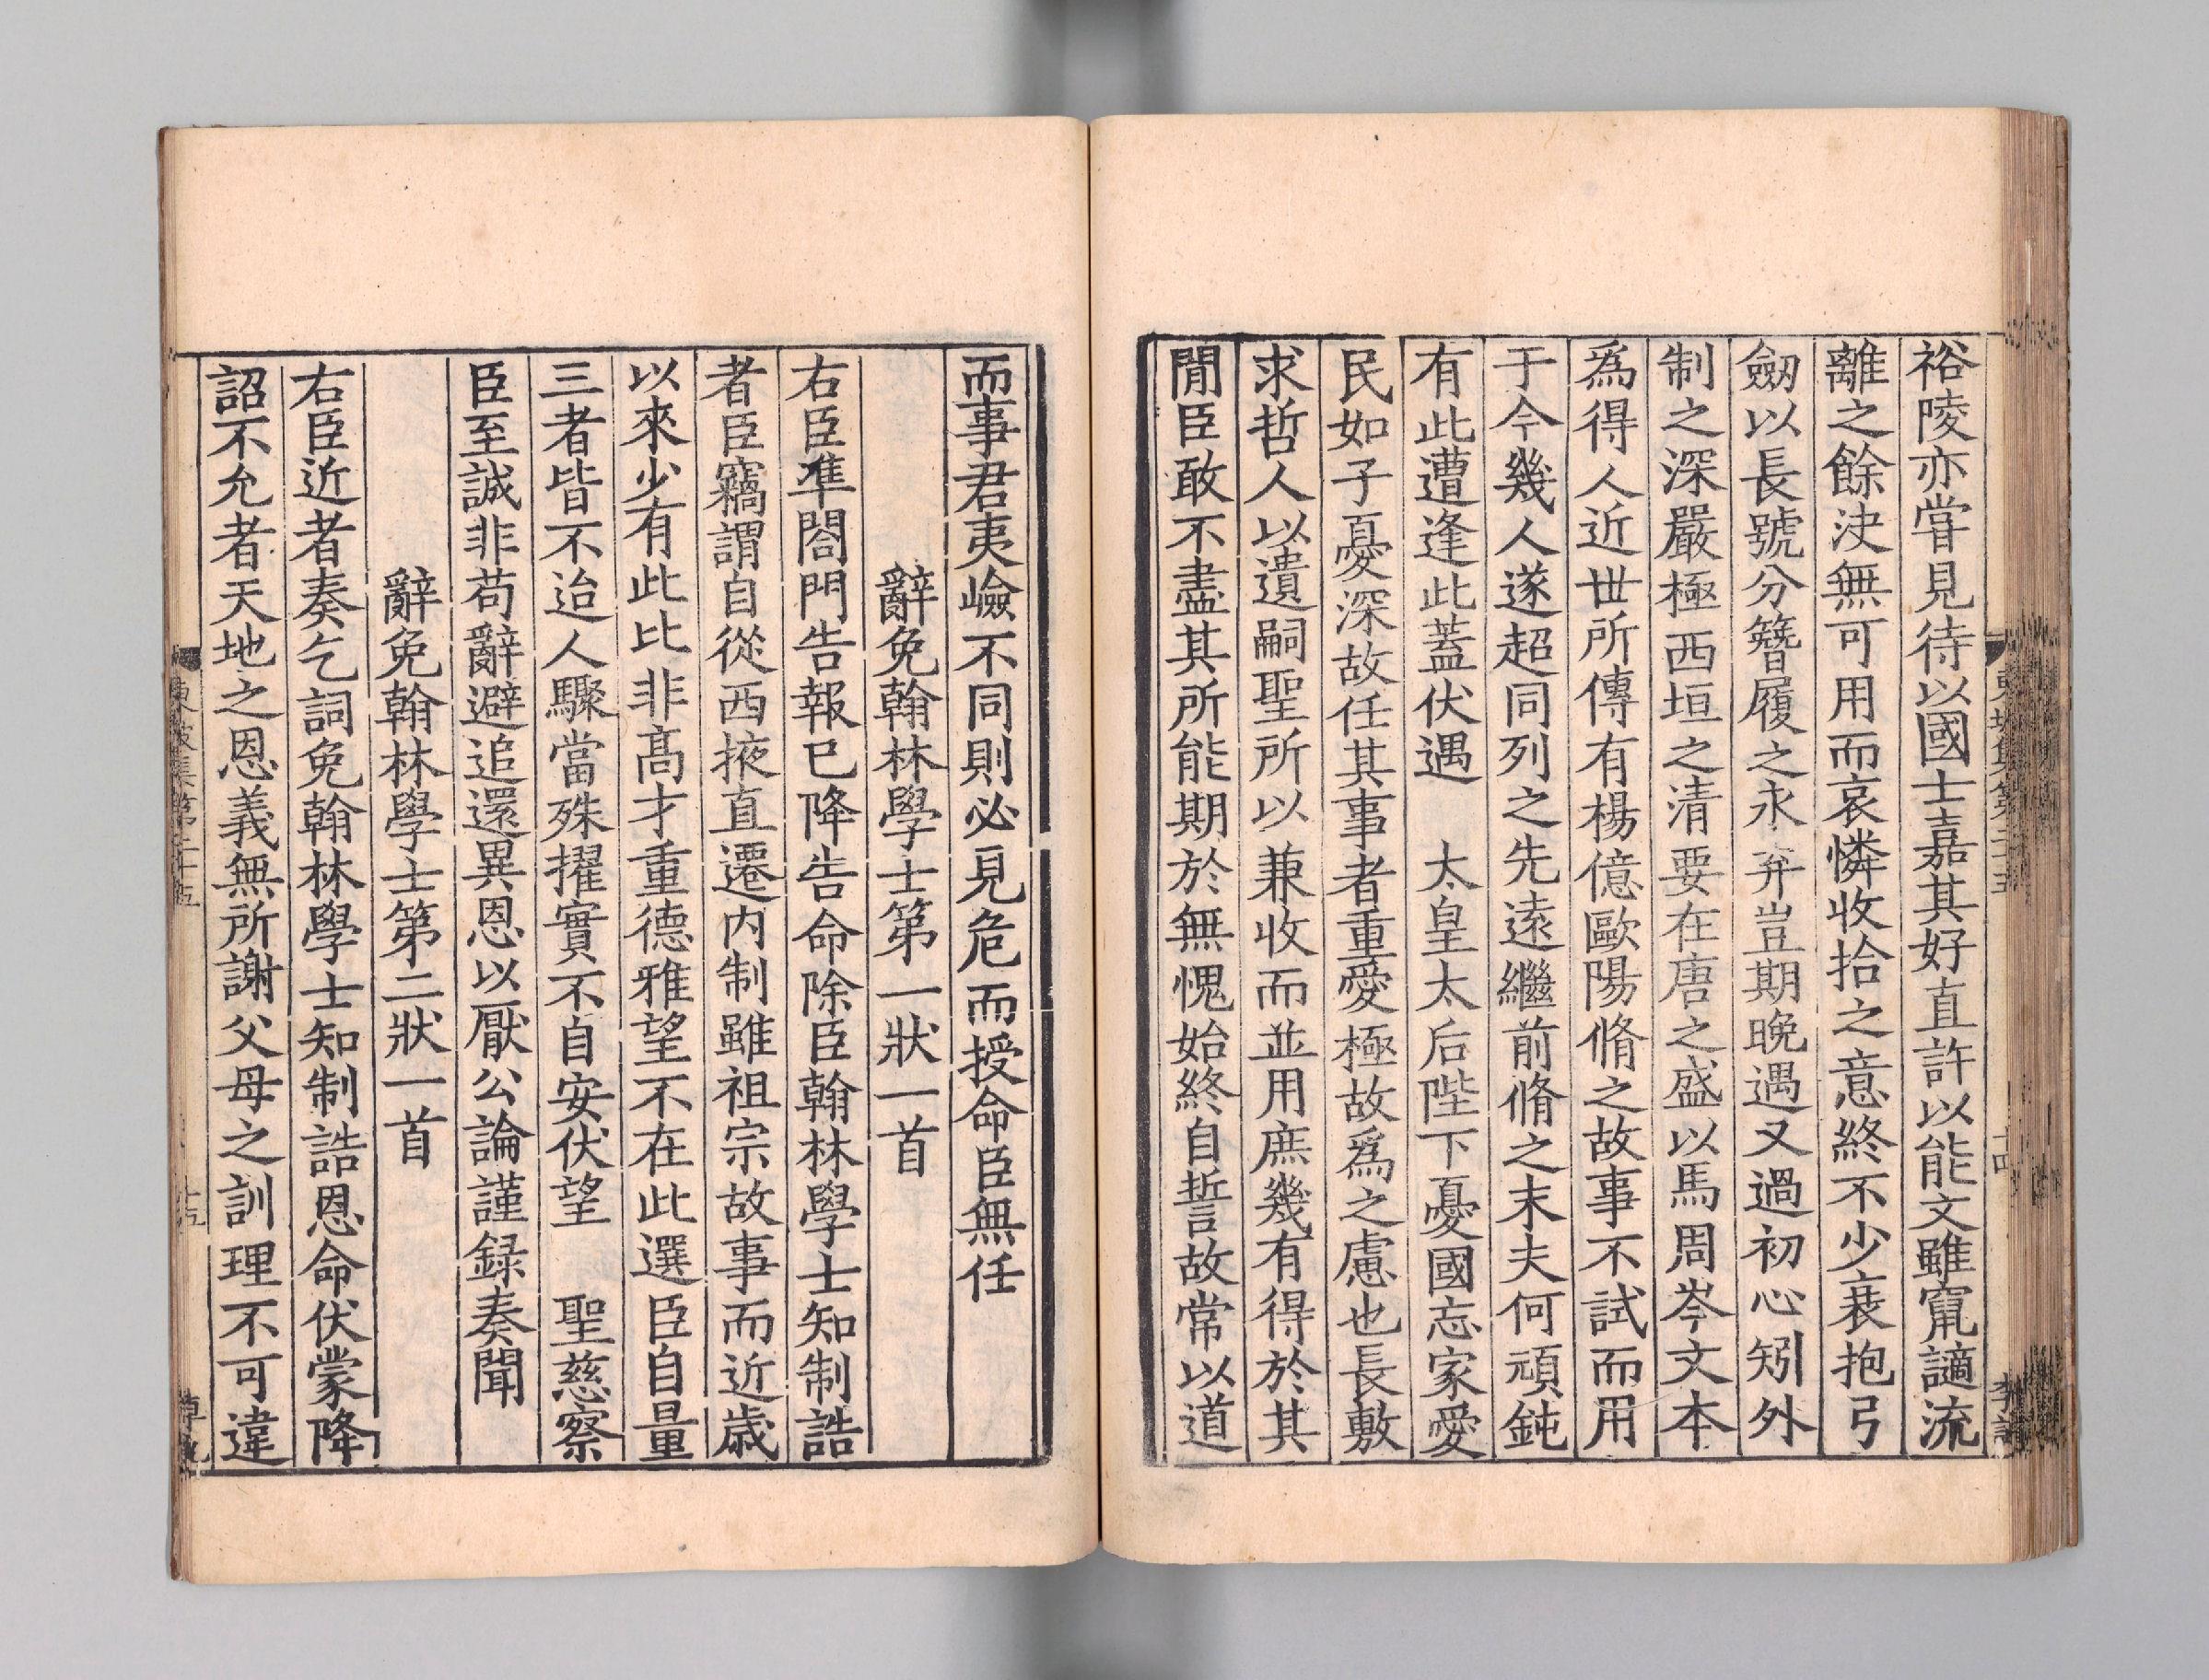 裕陵亦甞見待以國士嘉其好直許以能文雖竄謫流
離之餘決無可用而哀憐收拾之意終不少衰抱弓
劒以長號分簪履之永弃豈期晚遇又過初心矧外
制之深嚴極西垣之清要在唐之盛以馬周岑文本
爲得人近世所傳有楊億歐陽脩之故事不試而用
于今幾人遂超同列之先遠繼前脩之末夫何頑鈍
有此遭逢此蓋伏遇 太皇太后陛下憂國忘家愛
民如子憂深故任其事者重愛極故爲之慮也長敷
求哲人以遺嗣聖所以兼收而並用庶幾有得於其
閒臣敢不盡其所能期於無愧始終自誓故常以道
而事君夷嶮不同則必見危而授命臣無任
辭免翰林學士第一狀一首
右臣準閤門告報已降告命除臣翰林學士知制誥
者臣竊謂自從西掖直遷内制雖祖宗故事而近歲
以來少有此比非髙才重德雅望不在此選臣自量
三者皆不迨人驟當殊擢實不自安伏望 聖慈察
臣至誠非苟辭避追還異恩以厭公論謹録奏聞
辭免翰林學士第二狀一首
右臣近者奏乞詞免翰林學士知制誥恩命伏蒙降
詔不允者天地之恩義無所謝父母之訓理不可違
東坡集第二十五
十五